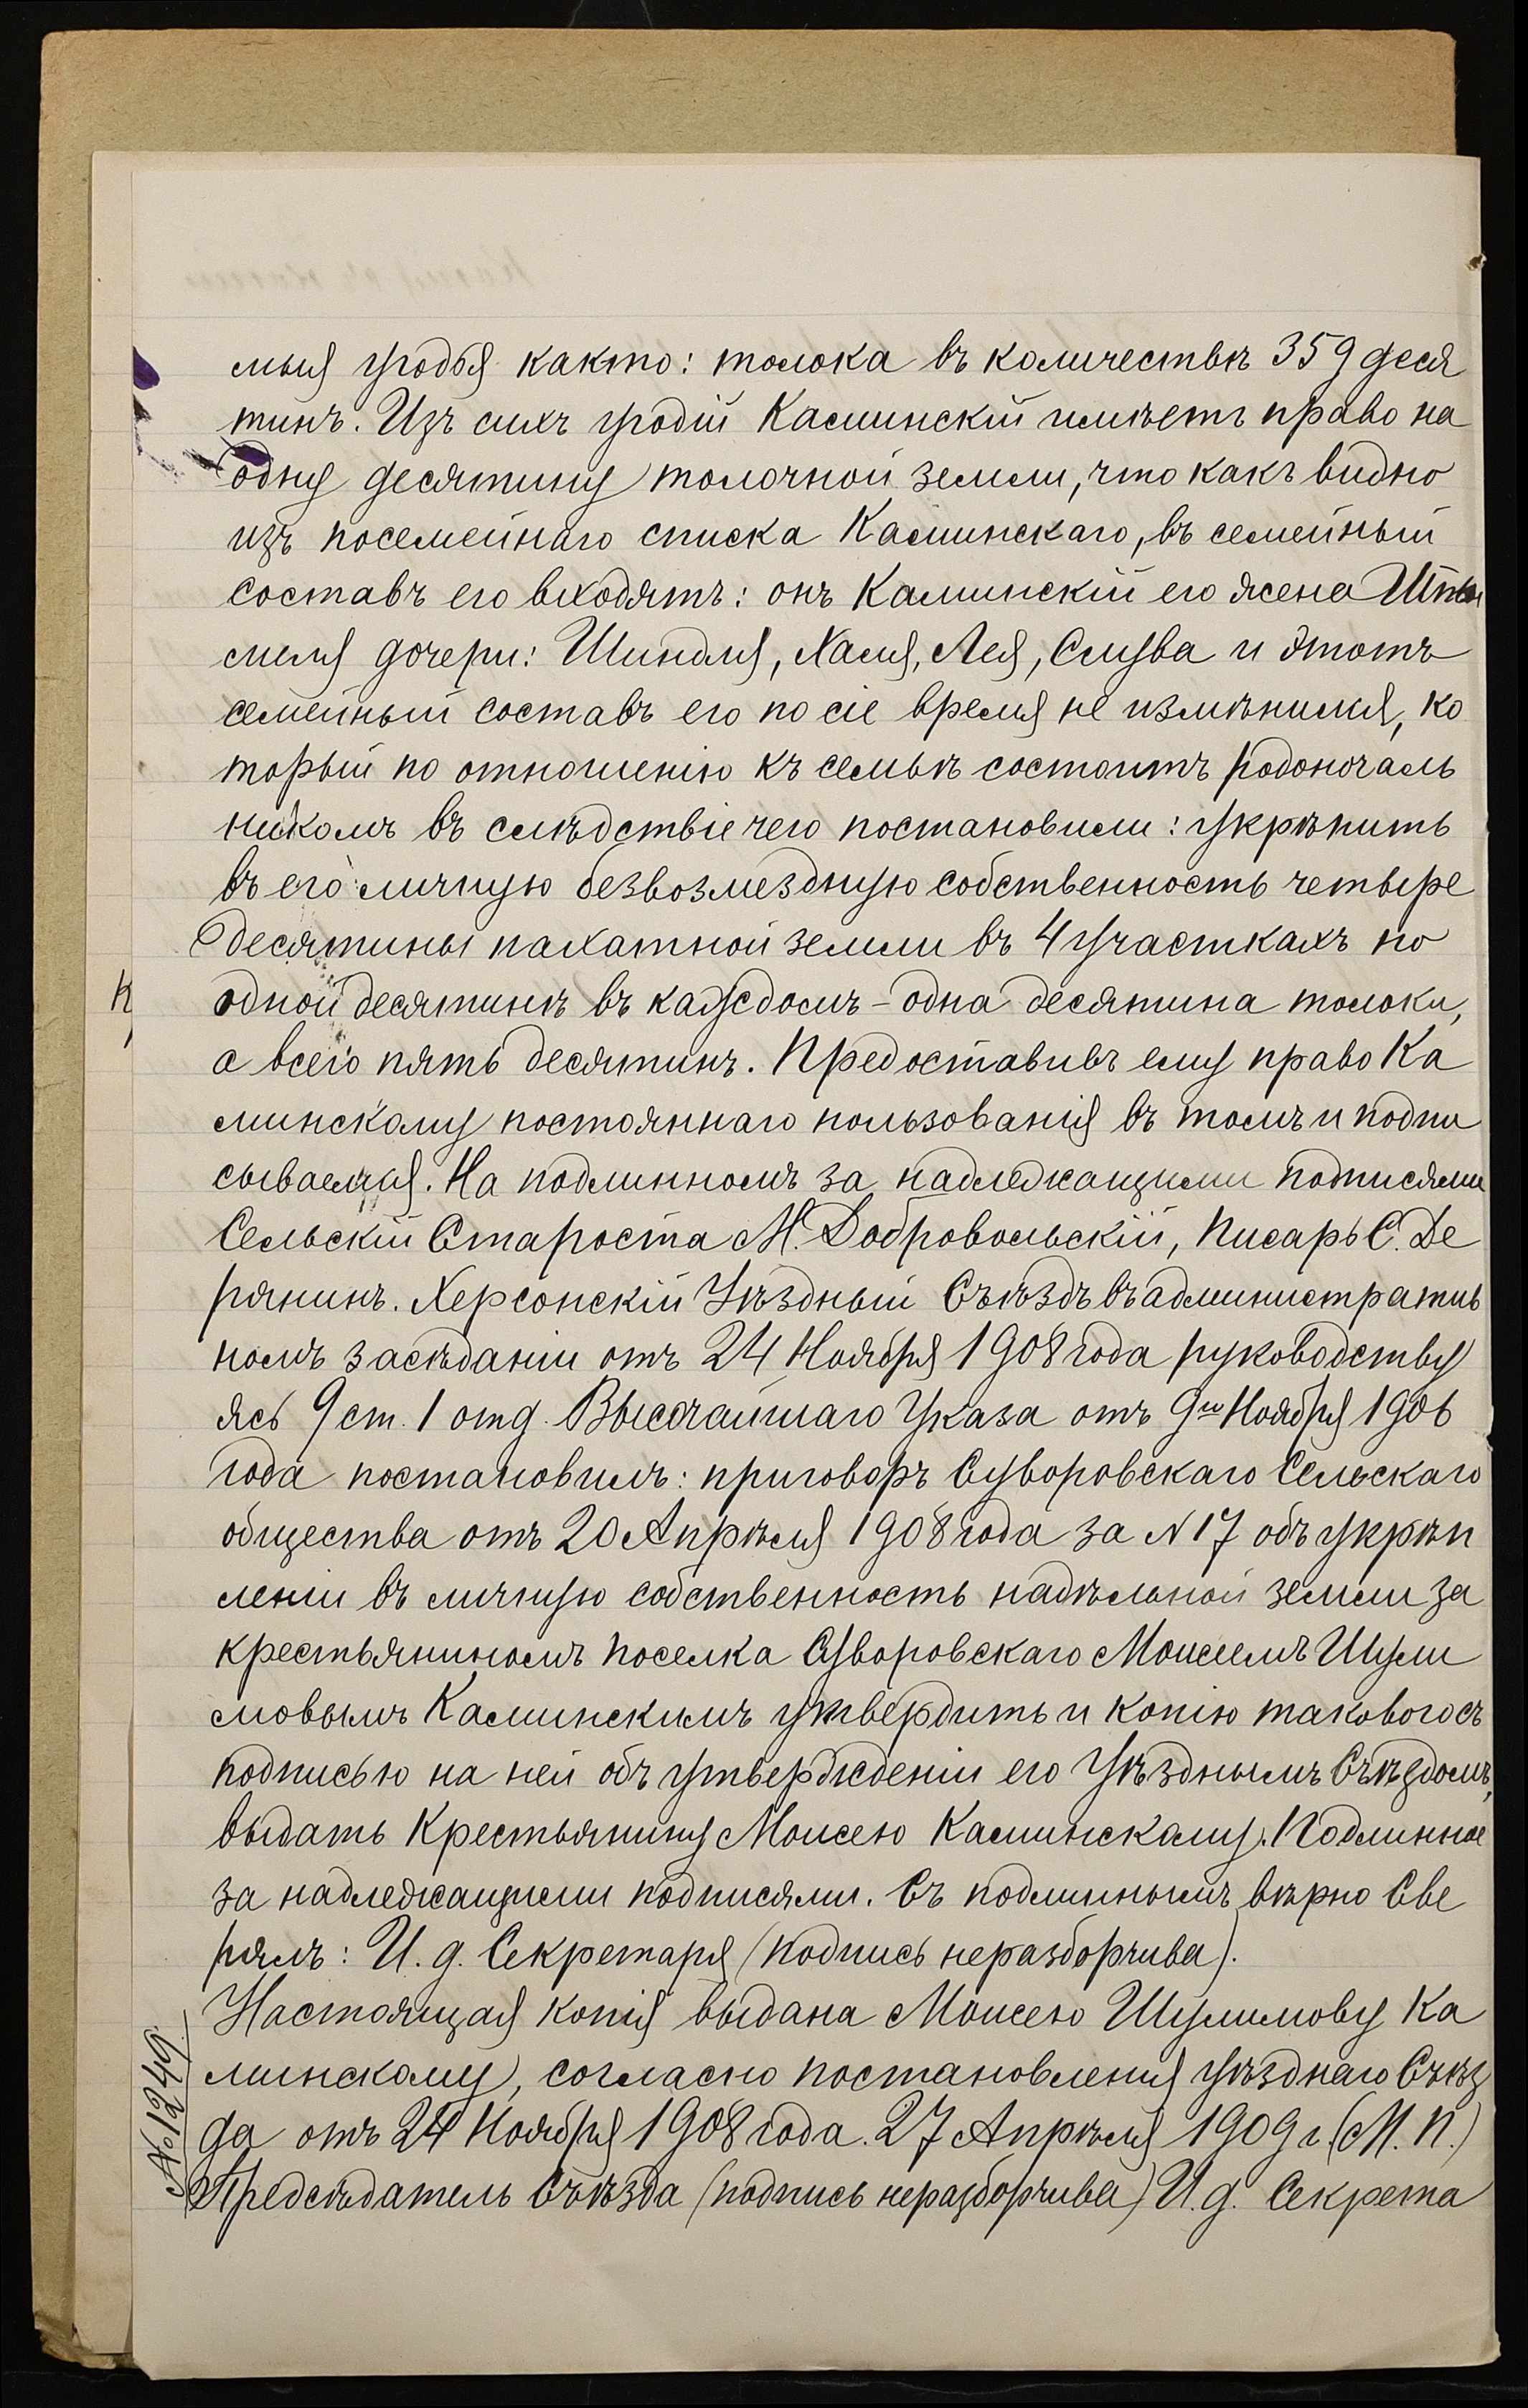 мыя угодья както: толока въ количествѣ 359 деся
тинъ. Изъ сихъ угодій Каминскій имѣетъ право на
одну десятину толочной земли, что какъ видно
изъ посемейнаго списка Каминскаго, въ семейный
составъ его входятъ: онъ Каминскій его жена
дочери: Шиндля, Хая, Лея, Слува и этотъ
семейный составъ его по сіе время не измѣнился, ко
торый по отношенію къ семьѣ состоитъ родоначаль
никомъ въ слѣдствіе чего постановили: укрѣпить
въ его личную безвозмездную собственность четыре
десятины пахатной земли въ 4 участкахъ по
одной десятинѣ въ каждомъ - одна десятина толоки,
а всего пять десятинъ. Предоставивъ ему право Ка
минскому постояннаго пользованія въ томъ и подпи
сываемся. На подлинномъ за надлежащими подписями
Сельскій Староста М. Добровольскій, Писарь С. Де
рянинъ. Херсонскій Уѣздный Съѣздъ въ административ
номъ засѣданіи отъ 24 Ноября 1908 года руководству
ясь 9 ст. 1 отд. Высочайшаго Указа отъ 9го Ноября 1906
года постановилъ: приговоръ Суворовскаго Сельскаго
общества отъ 20 Апрѣля 1908 года за N 17 объ укрѣп
леніи въ личную собственность надѣльной земли за
крестьяниномъ поселка Суворовскаго Моисеемъ Шули
мовымъ Каминскимъ утвердить и копію таковаго съ
подписью на ней объ утвержденіи его Уѣзднымъ Съѣздомъ,
выдать Крестьянину Моисею Каминскому. Подлинное
за надлежащими подписями. Съ подлиннымъ вѣрно Све
рялъ: И. д. Секретаря (подпись неразборчива).
Настоящая копія выдана Моисею Шулимову Ка
минскому, согласно постановленія уѣзднаго Съѣз
да отъ 24 Ноября 1908 года. 27 Апрѣля 1909 г. (М. П.)
Предсѣдатель Съѣзда (подпись неразборчива) И. д. Секрета
№ 1249